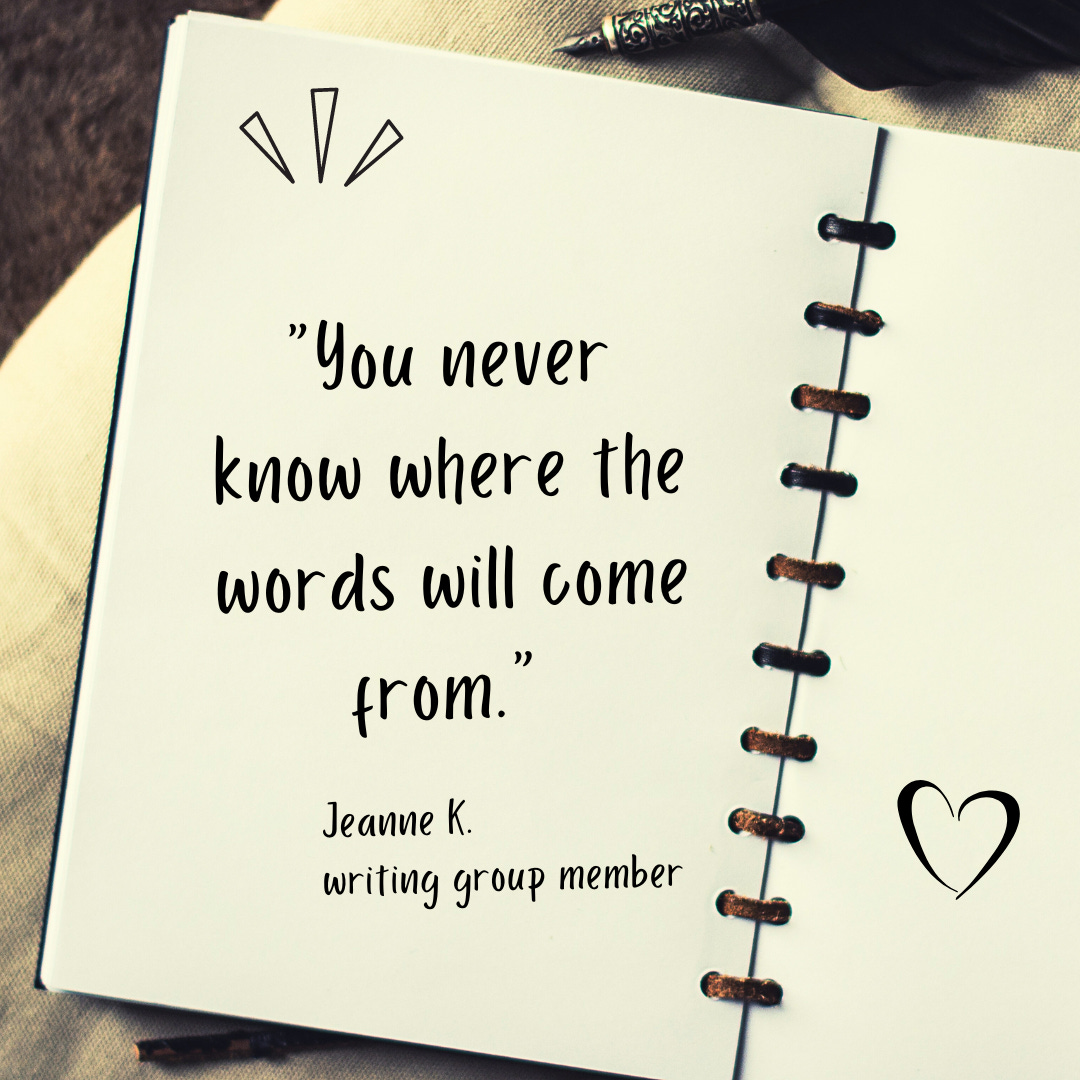 "You never
know where the
words will come
from."
Jeanne K.
writing group member